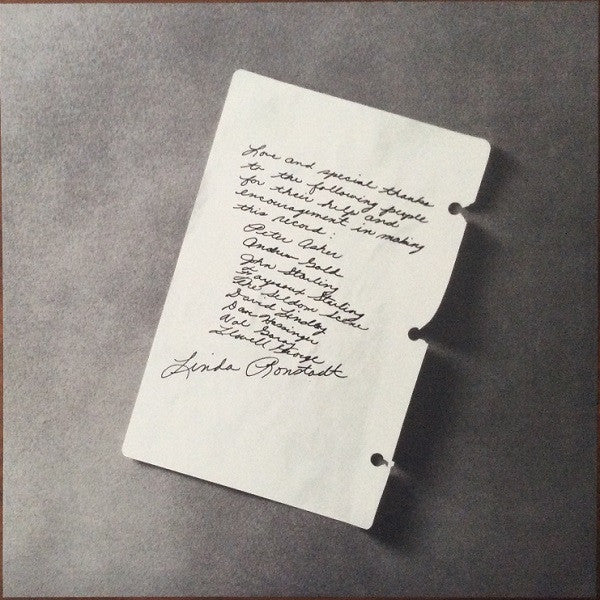 Love and special thanks
to the following people
for their help and
encouragement in making
this record:
Peter Asher
Andrew Gold
John Starling
Fayssoux Starling
The Seldom Scene
David Lindley
Dan Wessinger
Val Garay
Lowell George
Linda Ronstadt